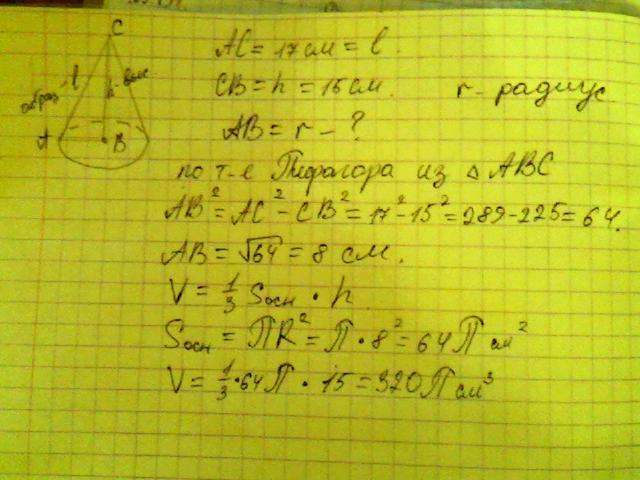 C
образ - l
h - выс
A
B
AC = 17 см = l.
CB = h = 15 см.
r - радиус
AB = r - ?
по т-е Пифагора из △ ABC
AB² = AC² - CB² = 17² - 15² = 289 - 225 = 64.
AB = √64 = 8 см.
V = 1/3 Sосн · h.
Sосн = ПR² = П · 8² = 64П см²
V = 1/3 · 64П · 15 = 320П см³